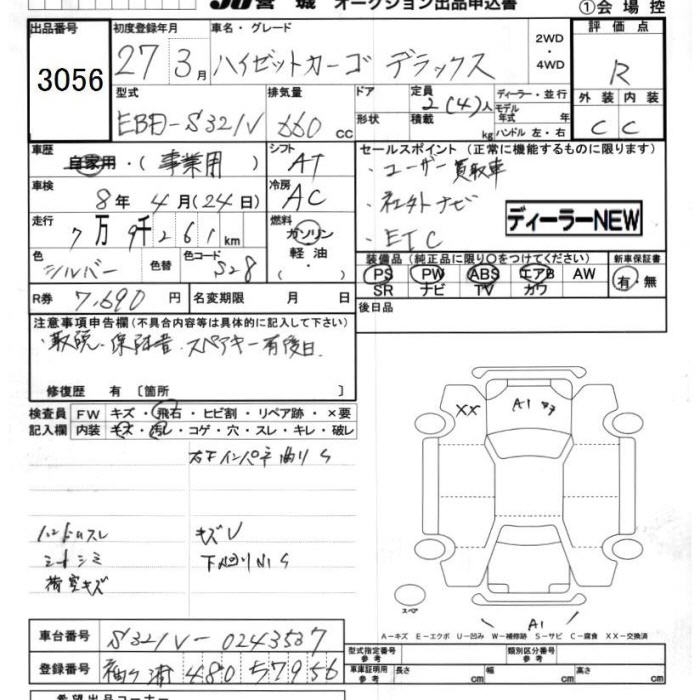 JU宮城 オークション出品申込書
①会場控
出品番号
3056
初度登録年月
27 3月
車名・グレード
ハイゼットカーゴ デラックス
2WD
・4WD
評価点
R
外装 内装
C C
型式
EBD-S321V
排気量
660 cc
ドア
形状
定員
2(4)人
積載
kg
ディーラー・並行
モデル年式 年
ハンドル 左・右
車歴
自家用・(事業用)
シフト
AT
車検
8年 4月(24日)
冷房
AC
走行
7万9千261km
燃料
ガソリン
軽油
色
シルバー
色替
色コード
S28
R券 7,690円
名変期限 月 日
セールスポイント (正常に機能するものに限ります)
・ユーザー買取車
・社外ナビ
・ETC
ディーラーNEW
装備品(純正品に限り○をつけてください)
PS PW ABS エアB AW
SR ナビ TV カワ
新車保証書
有・無
後日品
注意事項申告欄(不具合内容等は具体的に記入して下さい)
・取説、保証書、スペアキー有後日
修復歴 有 〔箇所 〕
検査員 FW キズ・飛石・ヒビ割・リペア跡・×要
記入欄 内装 キズ・汚レ・コゲ・穴・スレ・キレ・破レ
右下インパネ曲リS
ハンドルスレ
シートシミ
荷室キズ
キズU
下廻りサビS
XX
A1
スペア
A1
A-キズ E-エクボ U-凹み W-補修跡 S-サビ C-腐食 XX-交換済
車台番号
S321V-0243537
登録番号
袖ケ浦480 5 7956
型式指定番号
参考
類別区分番号
参考
車庫証明用
参考
長さ cm 幅 cm 高さ cm
希望出品コーナー